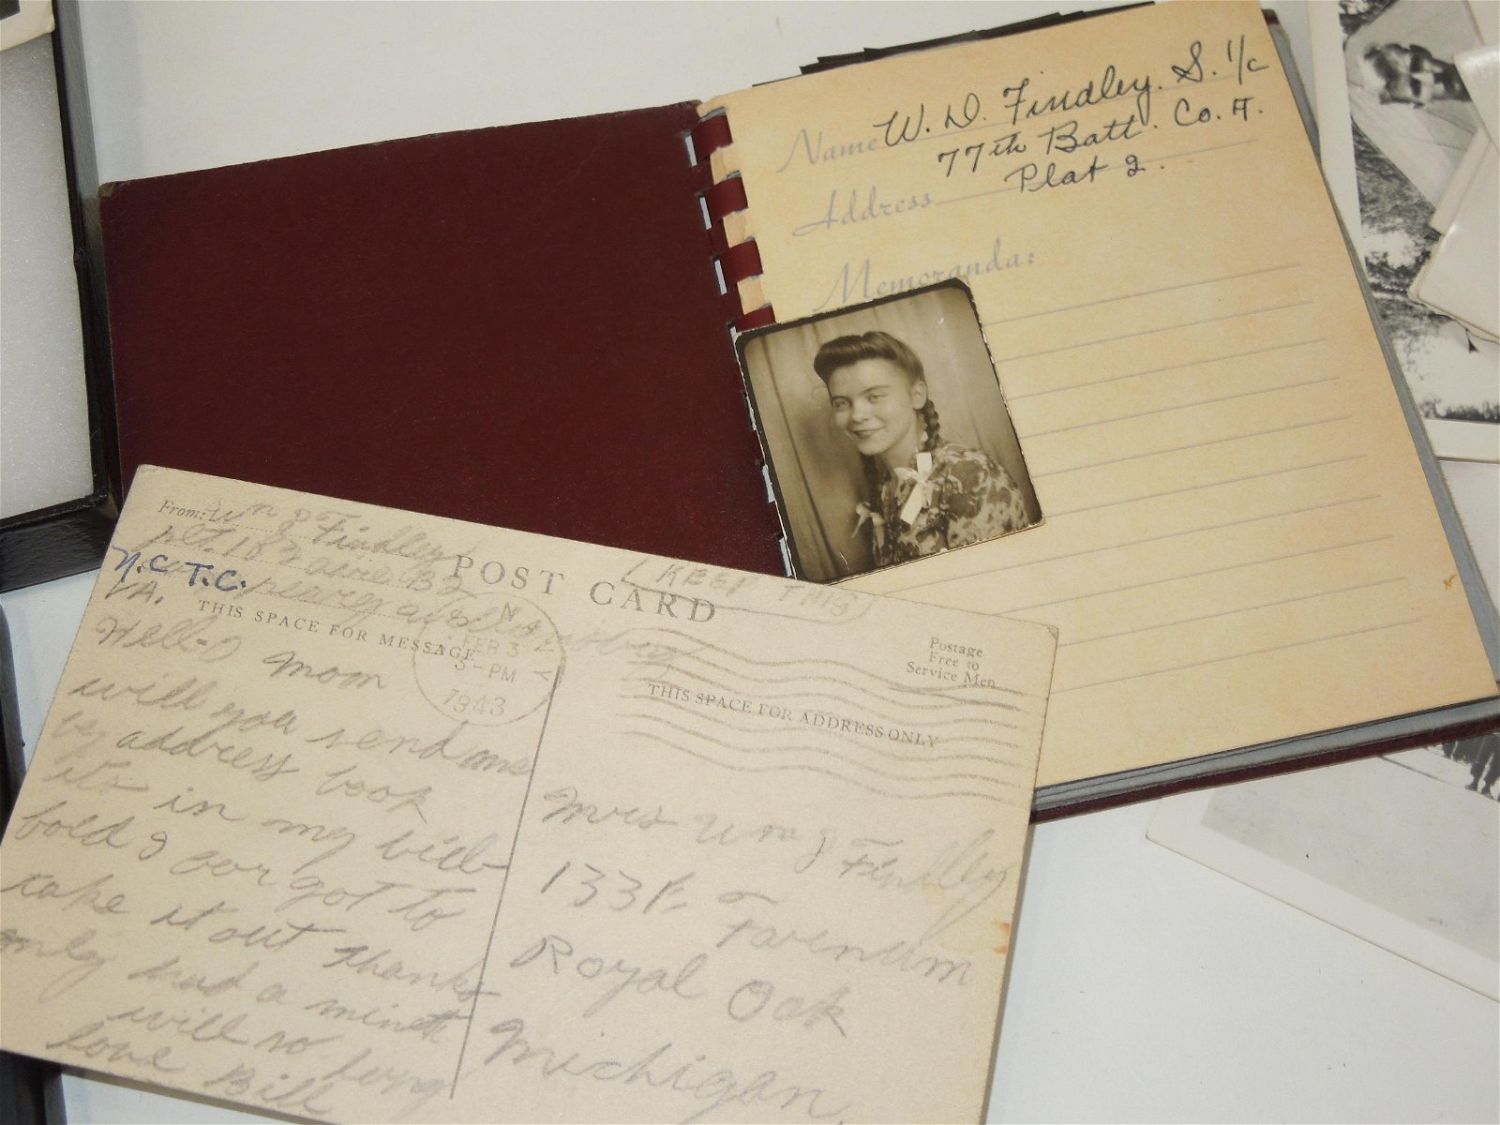 Name W. D. Findley. S. 1/c
77th Batt. Co. A.
Address
Plat 2.
Memoranda:
From: Wm J Findley
plt. 183
N.C.T.C.
VA.
POST CARD
KEEP THIS
THIS SPACE FOR MESSAGE
FEB 3
5-PM
1943
Postage
Free to
Service Men
THIS SPACE FOR ADDRESS ONLY
Hell-O Mom
will you send me
my address book
its in my bill-
fold I forgot to
take it out thanks
only had a minute
will so long
love Bill
Mrs Wm J Findley
Farnum
Royal Oak
Michigan